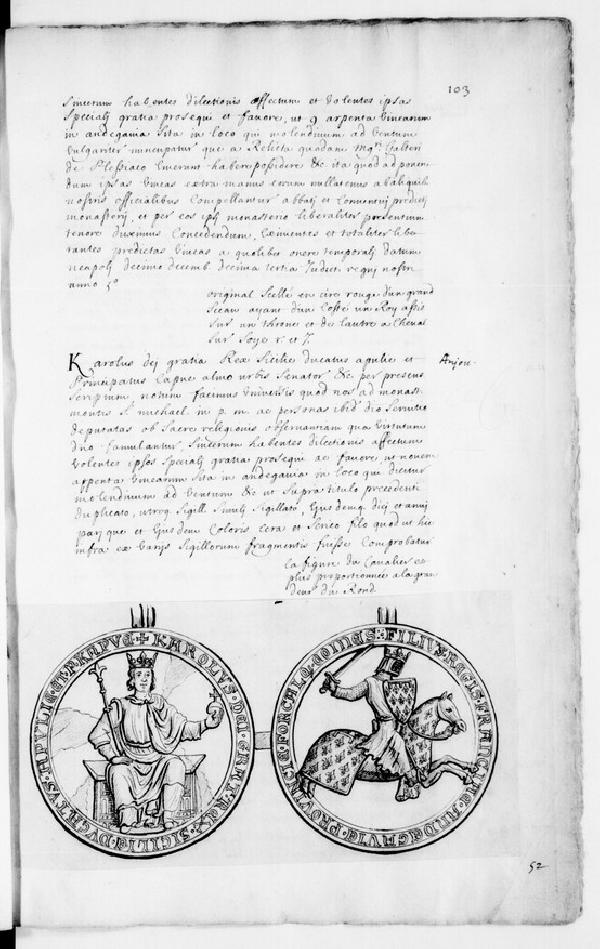 103
sincerum habentes dilectionis affectum et volentes ipsas
speciali gratia prosequi et favore, ut 9 arpenta vinearum
in andegavia sita in loco qui molendinum ad ventum
vulgariter nuncupatur que a Relicta quadam Magri Galteri
de Plessiaco tenere possidere &c ita quod ad ponen
dum ipsas vineas extra manus eorum nullatenus ab aliquib.
nostris officialibus compellantur abbati et conventui predicti
monasterij, et per eos ipsi monasterio liberaliter presentium
tenore duximus concedendum, eximentes et totaliter libe
rantes predictas vineas a quolibet onere temporali datum
neapoli decimo decemb. decima tertia Indict. regni nostri
anno 5º
original scellé en cire rouge d'un grand
sceau ayant d'un costé un Roy assis
sur un throne et de l'autre a cheval
sur soye r. et J.
Anjou.
Karolus dei gratia Rex Sicilie ducatus apulie et
Principatus Capue almo urbis Senator &c per presens
scriptum, notum facimus universis quod nos ad monast.
montis S. michael. in p. m. ac personas ibid. dio servitio
deputatas ob sacre religionis observantiam qua virtutum
dno famulantur, sincerum habentes dilectionis affectum
volentes ipsos speciali gratia prosequi ac favore ut novem
arpenta vinearum sita in andegavia in loco qui dicitur
molendinum ad ventum &c ut supra titulo precedenti
duplicato, utroq. sigill. simili sigillato, ejusdemq. diei et anni
pari que et ejusdem coloris cera et serico filo quod ut hic
infra ex varijs sigillorum fragmentis fuisse comprobatur
la figure du Cavalier est
plus proportionnee a la gran
deur du Rond
✝ KAROLVS DEI GRAT REX SICILIE DVCATVS APVLIE ET P KAPVE
FILIVS REGIS FRANCIE ANDEGAVIE PROVINCIE FORCALQ COMES
52